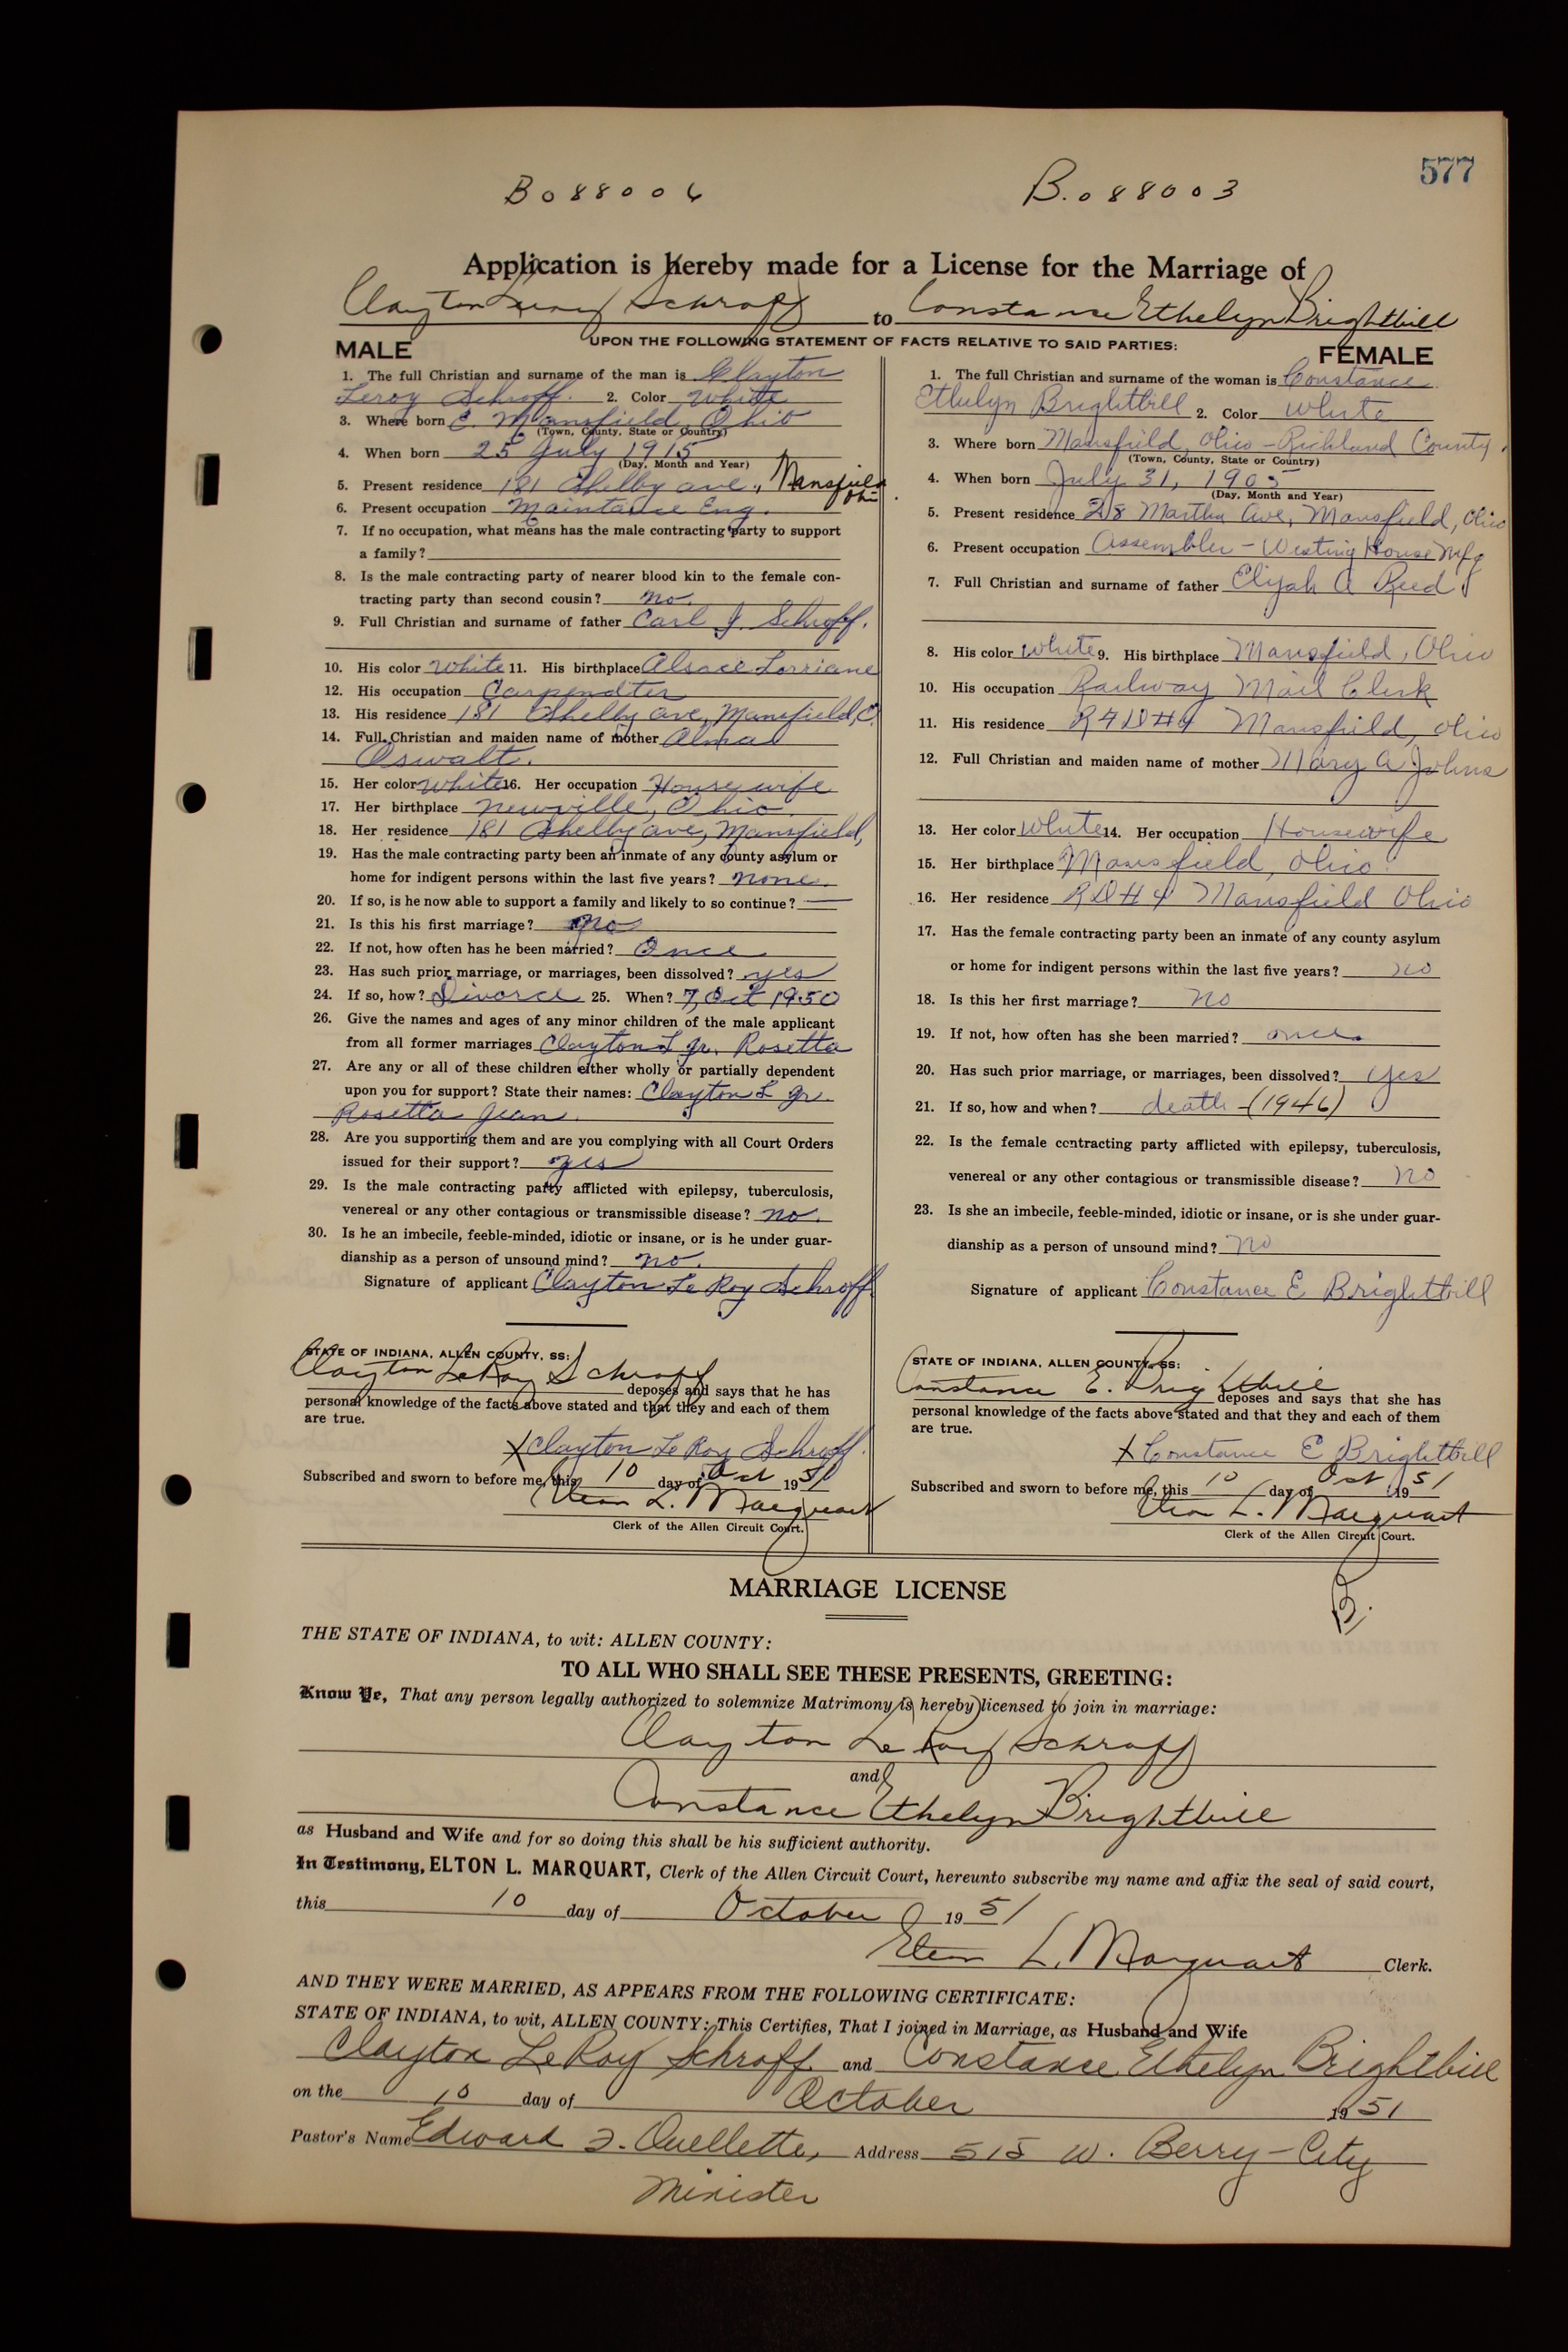 577
B088006 B.088003
Application is hereby made for a License for the Marriage of
Clayton Leroy Schroff to Constance Ethelyn Brightbill
UPON THE FOLLOWING STATEMENT OF FACTS RELATIVE TO SAID PARTIES:
MALE
1. The full Christian and surname of the man is Clayton
Leroy Schroff. 2. Color White
3. Where born E. Mansfield, Ohio
(Town, County, State or Country)
4. When born 25 July 1915
(Day, Month and Year)
5. Present residence 181 Shelby ave., Mansfield
Ohio.
6. Present occupation Maintaince Eng.
7. If no occupation, what means has the male contracting party to support
a family?
8. Is the male contracting party of nearer blood kin to the female con-
tracting party than second cousin? no.
9. Full Christian and surname of father Carl J. Schroff.
10. His color White 11. His birthplace Alsace Lorriane
12. His occupation Carpenditer
13. His residence 181 Shelby ave, Mansfield, O.
14. Full Christian and maiden name of mother Alma
Oswalt.
15. Her color White 16. Her occupation House wife
17. Her birthplace Newville, Ohio.
18. Her residence 181 Shelby ave, Mansfield,
19. Has the male contracting party been an inmate of any county asylum or
home for indigent persons within the last five years? none.
20. If so, is he now able to support a family and likely to so continue? —
21. Is this his first marriage? no
22. If not, how often has he been married? Once
23. Has such prior marriage, or marriages, been dissolved? yes
24. If so, how? Divorce 25. When? 7, Oct 1950
26. Give the names and ages of any minor children of the male applicant
from all former marriages Clayton L Jr. Rosetta
27. Are any or all of these children either wholly or partially dependent
upon you for support? State their names: Clayton L Jr.
Rosetta Jean.
28. Are you supporting them and are you complying with all Court Orders
issued for their support? yes
29. Is the male contracting party afflicted with epilepsy, tuberculosis,
venereal or any other contagious or transmissible disease? no.
30. Is he an imbecile, feeble-minded, idiotic or insane, or is he under guar-
dianship as a person of unsound mind? no.
Signature of applicant Clayton Le Roy Schroff
STATE OF INDIANA, ALLEN COUNTY, SS:
Clayton LeRoy Schroff deposes and says that he has
personal knowledge of the facts above stated and that they and each of them
are true.
X Clayton Le Roy Schroff.
Subscribed and sworn to before me, this 10 day of Oct 1951
Elton L. Marquart
Clerk of the Allen Circuit Court.
FEMALE
1. The full Christian and surname of the woman is Constance
Ethelyn Brightbill 2. Color White
3. Where born Mansfield, Ohio - Richland County.
(Town, County, State or Country)
4. When born July 31, 1905
(Day, Month and Year)
5. Present residence 28 Martha Ave, Mansfield, Ohio
6. Present occupation Assembler - Westing House Mfg
7. Full Christian and surname of father Elijah A Reed
8. His color White 9. His birthplace Mansfield, Ohio
10. His occupation Railway Mail Clerk
11. His residence RFD#4 Mansfield, Ohio
12. Full Christian and maiden name of mother Mary A Johns
13. Her color White 14. Her occupation Housewife
15. Her birthplace Mansfield, Ohio.
16. Her residence RD#4 Mansfield Ohio
17. Has the female contracting party been an inmate of any county asylum
or home for indigent persons within the last five years? no
18. Is this her first marriage? no
19. If not, how often has she been married? once.
20. Has such prior marriage, or marriages, been dissolved? yes
21. If so, how and when? death - (1946)
22. Is the female contracting party afflicted with epilepsy, tuberculosis,
venereal or any other contagious or transmissible disease? no
23. Is she an imbecile, feeble-minded, idiotic or insane, or is she under guar-
dianship as a person of unsound mind? no
Signature of applicant Constance E Brightbill
STATE OF INDIANA, ALLEN COUNTY, SS:
Constance E. Brightbill deposes and says that she has
personal knowledge of the facts above stated and that they and each of them
are true.
X Constance E Brightbill
Subscribed and sworn to before me, this 10 day of Oct 1951
Elton L. Marquart
Clerk of the Allen Circuit Court.
B.
MARRIAGE LICENSE
THE STATE OF INDIANA, to wit: ALLEN COUNTY:
TO ALL WHO SHALL SEE THESE PRESENTS, GREETING:
Know Ye, That any person legally authorized to solemnize Matrimony is hereby licensed to join in marriage:
Clayton Le Roy Schroff
and
Constance Ethelyn Brightbill
as Husband and Wife and for so doing this shall be his sufficient authority.
In Testimony, ELTON L. MARQUART, Clerk of the Allen Circuit Court, hereunto subscribe my name and affix the seal of said court,
this 10 day of October 1951
Elton L. Marquart Clerk.
AND THEY WERE MARRIED, AS APPEARS FROM THE FOLLOWING CERTIFICATE:
STATE OF INDIANA, to wit, ALLEN COUNTY: This Certifies, That I joined in Marriage, as Husband and Wife
Clayton LeRoy Schroff and Constance Ethelyn Brightbill
on the 10 day of October 1951
Pastor's Name Edward J. Ouellette, Address 515 W. Berry - City
Minister